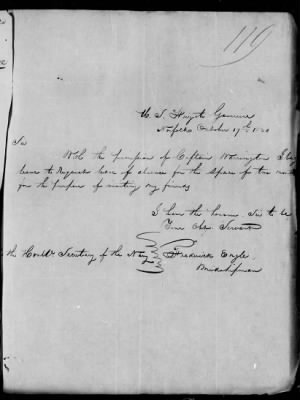 119
U. S. Frigate Guerriere
Norfolk October 17th 1820
Sir
With the permission of Captain Warrington I beg
leave to request leave of absence for the space of two months
for the purpose of visiting my friends
I have the honour Sir to be
Your Obt. Servant
Frederick Engle
Midshipman
the Honble Secretary of the Navy